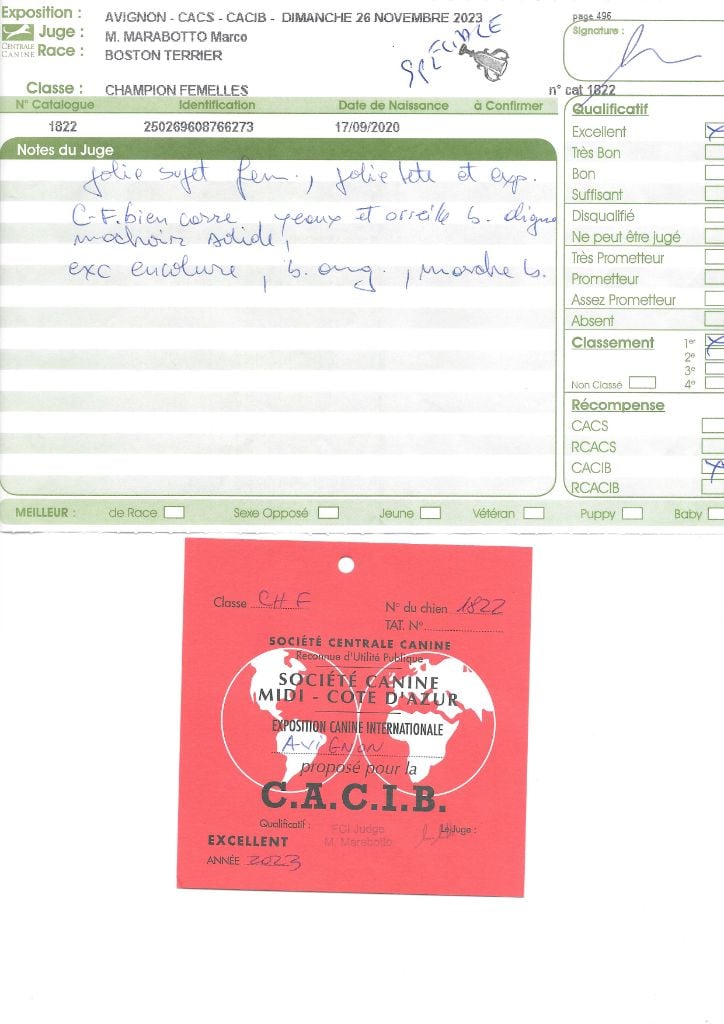 Exposition : AVIGNON - CACS - CACIB - DIMANCHE 26 NOVEMBRE 2023
Juge : M. MARABOTTO Marco
CENTRALE CANINE
Race : BOSTON TERRIER
SPECIALE
Classe : CHAMPION FEMELLES
page 496
Signature :
n° cat 1822
N° Catalogue Identification Date de Naissance à Confirmer
1822 250269608766273 17/09/2020
Notes du Juge
Jolie sujet fem., jolie tete et exp.
C-F. bien carre, yeaux et oreille b.
machoir solide,
exc encolure, b. ang., marche b.
Qualificatif
Excellent
Très Bon
Bon
Suffisant
Disqualifié
Ne peut être jugé
Très Prometteur
Prometteur
Assez Prometteur
Absent
Classement 1er
2e
3e
Non Classé 4e
Récompense
CACS
RCACS
CACIB
RCACIB
MEILLEUR : de Race Sexe Opposé Jeune Vétéran Puppy Baby
Classe CH F
N° du chien 1822
TAT. N°
SOCIÉTÉ CENTRALE CANINE
Reconnue d'Utilité Publique
SOCIÉTÉ CANINE
MIDI - COTE D'AZUR
EXPOSITION CANINE INTERNATIONALE
AVIGNON
proposé pour la
C.A.C.I.B.
Qualificatif : FCI Judge Le Juge :
EXCELLENT M. Marabotto
ANNÉE 2023